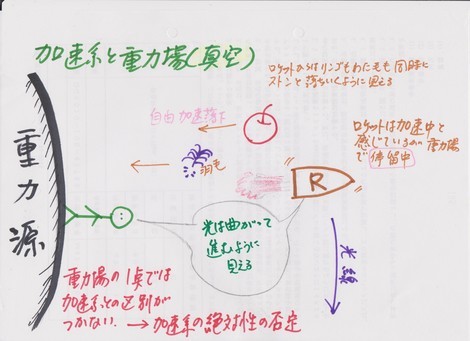 加速系と重力場(真空)
ロケットからはリンゴもわた毛も同時に
ストンと落ちていくように見える
自由加速落下
ロケットは加速中と
感じているのが重力場
で停留中
羽毛
R
重力源
光は曲がって
進むように
見える
光線
重力場の1点では
加速系との区別が
つかない. → 加速系の絶対性の否定